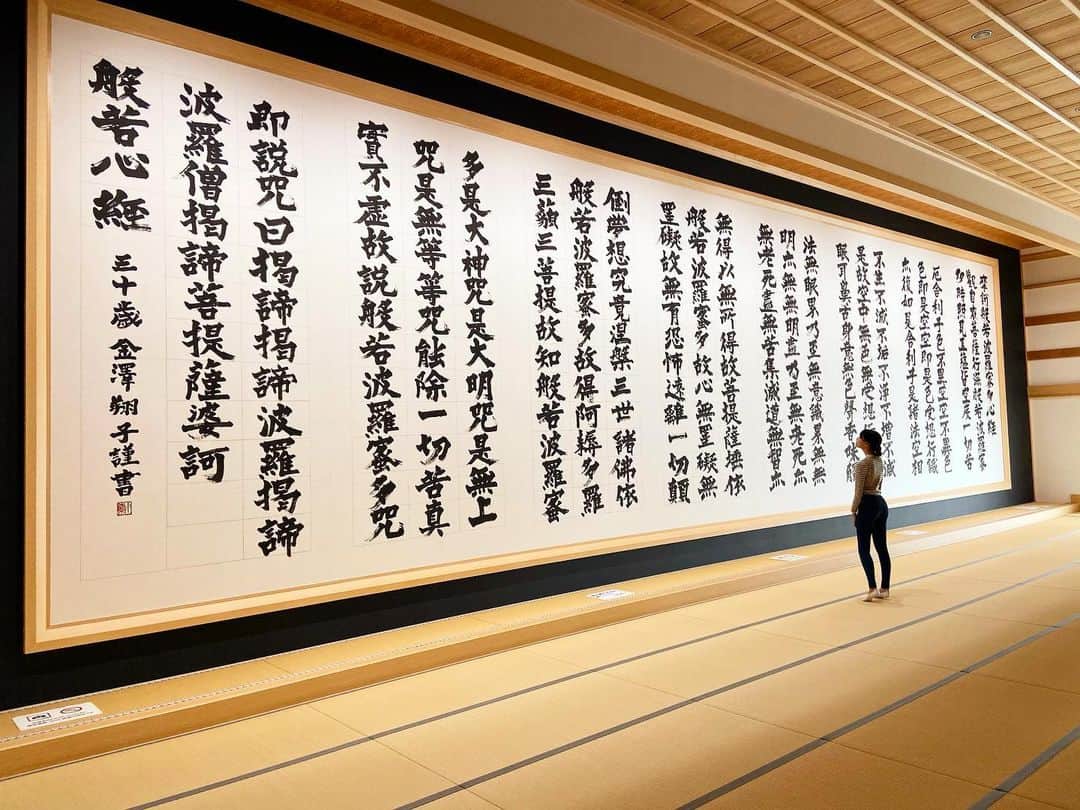 摩訶般若波羅蜜多心経
觀自在菩薩行深般若波羅蜜
多時照見五蘊皆空度一切苦
厄舎利子色不異空空不異色
色即是空空即是色受想行識
亦復如是舎利子是諸法空相
不生不滅不垢不浄不増不減
是故空中無色無受想
眼耳鼻舌身意無色聲香味觸
法無眼界乃至無意識界無無
明亦無無明盡乃至無老死亦
無老死盡無苦集滅道無智亦
無得以無所得故菩提薩埵依
般若波羅蜜多故心無罣礙無
罣礙故無有恐怖遠離一切顛
倒夢想究竟涅槃三世諸佛依
般若波羅蜜多故得阿耨多羅
三藐三菩提故知般若波羅蜜
多是大神咒是大明咒是無上
咒是無等等咒能除一切苦真
實不虚故説般若波羅蜜多咒
即説咒曰揭諦揭諦波羅揭諦
波羅僧揭諦菩提薩婆訶
般若心經 三十歳 金澤翔子謹書